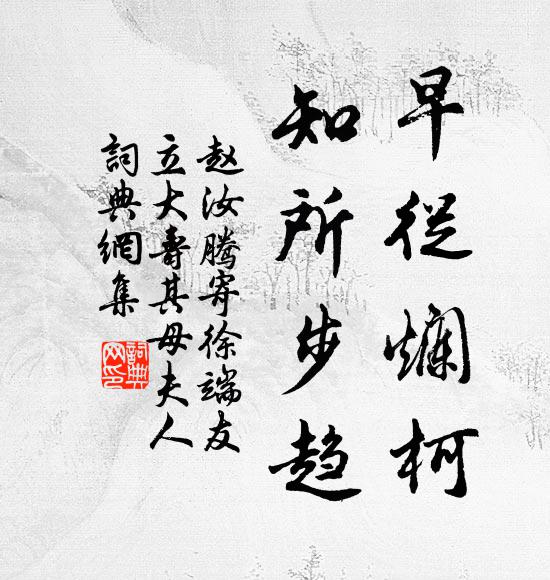 早從爛柯
知所步趋
赵汝騰寄徐端友
立大壽其母夫人
詞典網集
詞典网印